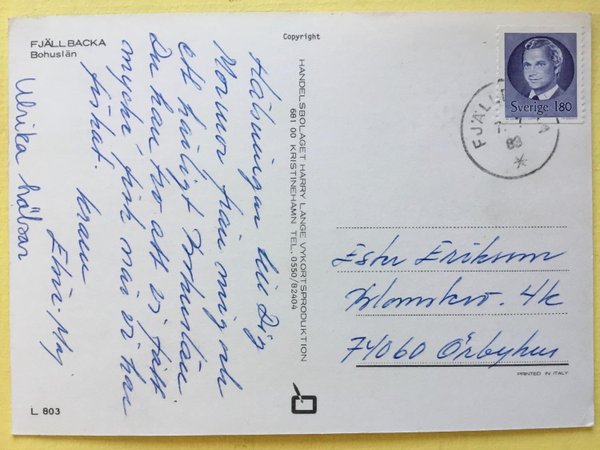 FJÄLLBACKA
Bohuslän
Copyright
Sverige 180
FJÄLL A
7. 7
83
Hälsningar till Dig
Mormor från mig och
ett härligt Bohuslän.
Du kan tro att vi fått
mycke' fisk när vi har
fiskat.
kram
Elin-Maj
Ulrika hälsar
HANDELSBOLAGET HARRY LANGE VYKORTSPRODUKTION
681 00 KRISTINEHAMN TEL. 0550/82404
Ester Eriksson
Blomsterv. 4k
74060 Örbyhus
PRINTED IN ITALY
L 803